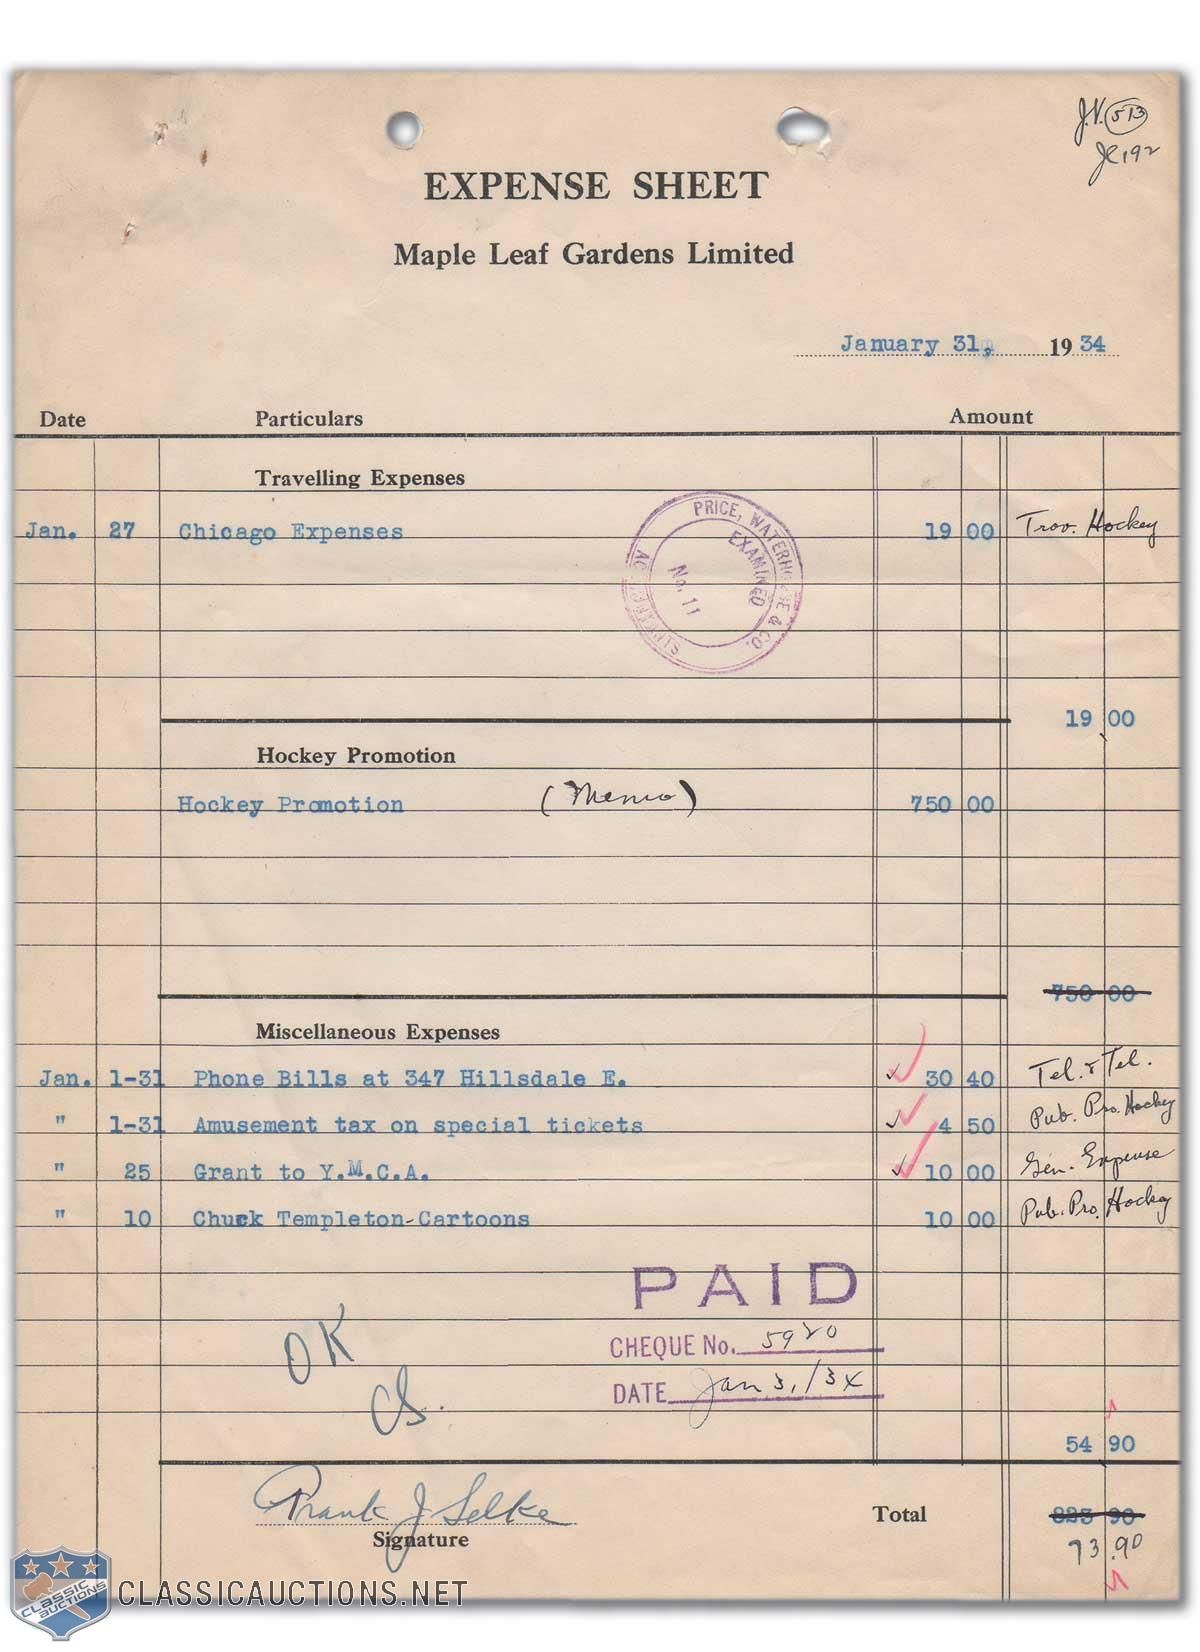 J.V. 513
JC 192
EXPENSE SHEET
Maple Leaf Gardens Limited
January 31, 1934
Date Particulars Amount
Travelling Expenses
Jan. 27 Chicago Expenses 19 00 Trav. Hockey
PRICE, WATERHOUSE & CO.
EXAMINED
No. 11
19 00
Hockey Promotion
Hockey Promotion (Memo) 750 00
750 00
Miscellaneous Expenses
Jan. 1-31 Phone Bills at 347 Hillsdale E. 30 40 Tel. & Tel.
" 1-31 Amusement tax on special tickets 4 50 Pub. Pro. Hockey
" 25 Grant to Y.M.C.A. 10 00 Gen. Expense
" 10 Chuck Templeton-Cartoons 10 00 Pub. Pro. Hockey
PAID
OK
CHEQUE No. 5920
DATE Jan 31/34
CS.
54 90
Frank J Selke
Signature
Total 823 90
73.90
CLASSIC AUCTIONS
CLASSICAUCTIONS.NET